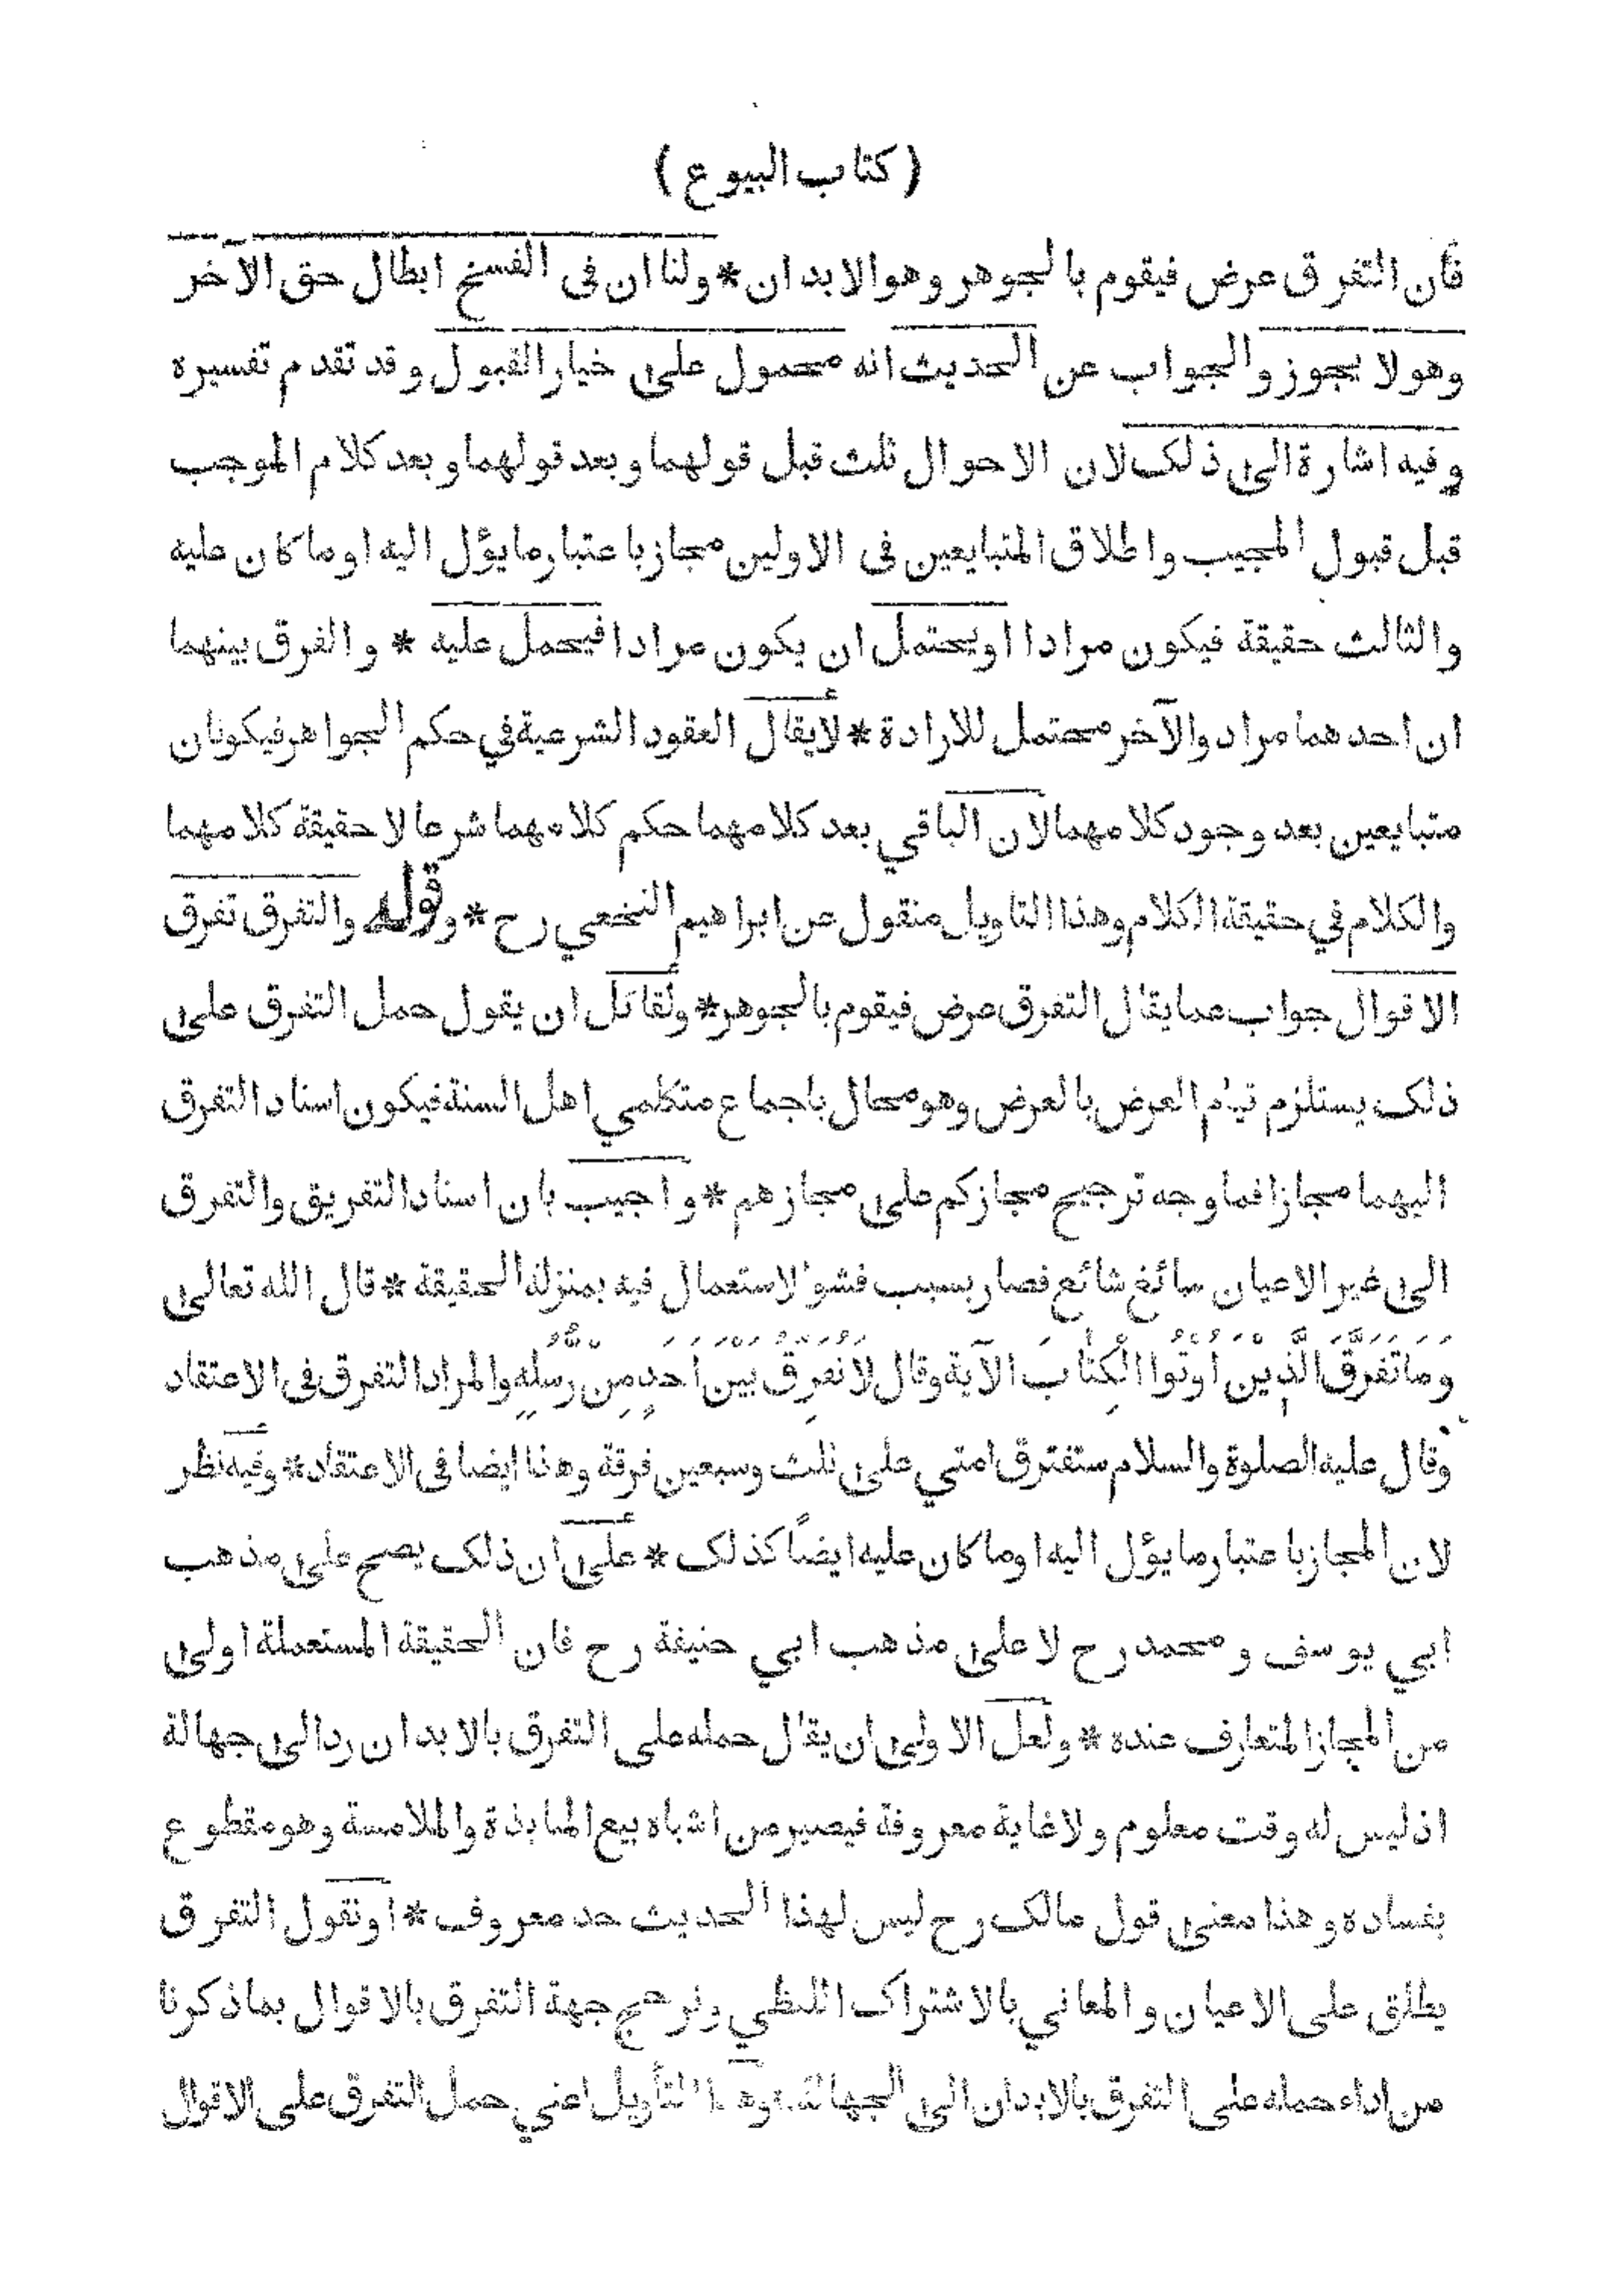 ( كتاب البيوع )
فأن التفرق عرض فيقوم بالجوهر وهو الابدان * ولنا ان فى الفسخ ابطال حق الآخر
وهو لا يجوز والجواب عن الحديث انه محمول على خيار القبول وقد تقدم تفسيره
وفيه اشارة الى ذلك لان الاحوال ثلث قبل قولهما وبعد قولهما وبعد كلام الموجب
قبل قبول المجيب واطلاق المتبايعين فى الاولين مجاز باعتبار ما يؤل اليه او ما كان عليه
والثالث حقيقة فيكون مرادا او يحتمل ان يكون مرادا فيحمل عليه * والفرق بينهما
ان احدهما مراد والآخر محتمل للارادة * لايقال العقود الشرعية في حكم الجواهر فيكونان
متبايعين بعد وجود كلامهما لان الباقي بعد كلامهما حكم كلامهما شرعا لا حقيقة كلامهما
والكلام في حقيقة الكلام وهذا التاويل منقول عن ابراهيم النخعي رح * وقوله والتفرق تفرق
الاقوال جواب عما يقال التفرق عرض فيقوم بالجوهر * ولقائل ان يقول حمل التفرق على
ذلك يستلزم قيام العرض بالعرض وهو محال باجماع متكلمي اهل السنة فيكون اسناد التفرق
اليهما مجازا فما وجه ترجيح مجازكم على مجازهم * واجيب بان اسناد التفريق والتفرق
الى غير الاعيان سائغ شائع فصار بسبب فشو الاستعمال فيه بمنزلة الحقيقة * قال الله تعالى
وَمَا تَفَرَّقَ الَّذِيْنَ اُوْتُوا الْكِتَابَ الآية وقال لَا نُفَرِّقُ بَيْنَ اَحَدٍ مِنْ رُسُلِهِ والمراد التفرق فى الاعتقاد
وقال عليه الصلوة والسلام ستفترق امتي على ثلث وسبعين فرقة وهذا ايضا فى الاعتقاد * وفيه نظر
لان المجاز باعتبار ما يؤل اليه او ما كان عليه ايضاً كذلك * على ان ذلك يصح على مذهب
ابي يوسف ومحمد رح لا على مذهب ابي حنيفة رح فان الحقيقة المستعملة اولى
من المجاز المتعارف عنده * ولعل الاولى ان يقال حمله على التفرق بالابدان رد الى جهالة
اذ ليس له وقت معلوم ولا غاية معروفة فيصير من اشباه بيع المنابذة والملامسة وهو مقطوع
بفساده وهذا معنى قول مالك رح ليس لهذا الحديث حد معروف * او نقول التفرق
يطلق على الاعيان والمعاني بالاشتراك اللفظي ونرجح جهة التفرق بالاقوال بما ذكرنا
من اداء حمله على التفرق بالابدان الى الجهالة وهذا التأويل اعني حمل التفرق على الاقوال